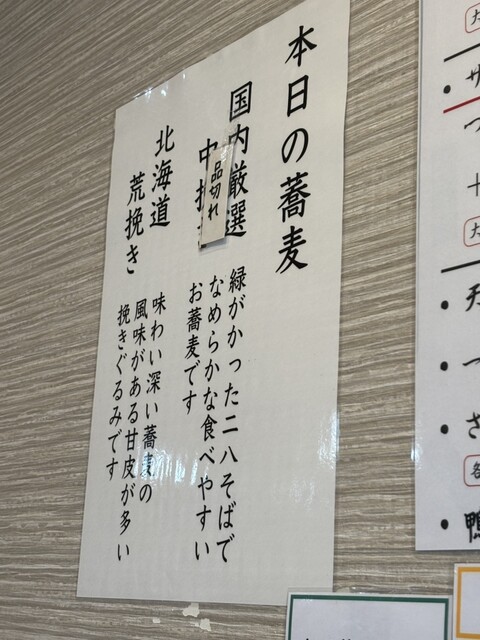 本日の蕎麦
国内厳選
中挽
品切れ
緑がかった二八そばで
なめらかな食べやすい
お蕎麦です
北海道
荒挽き
味わい深い蕎麦の
風味がある甘皮が多い
挽きぐるみです